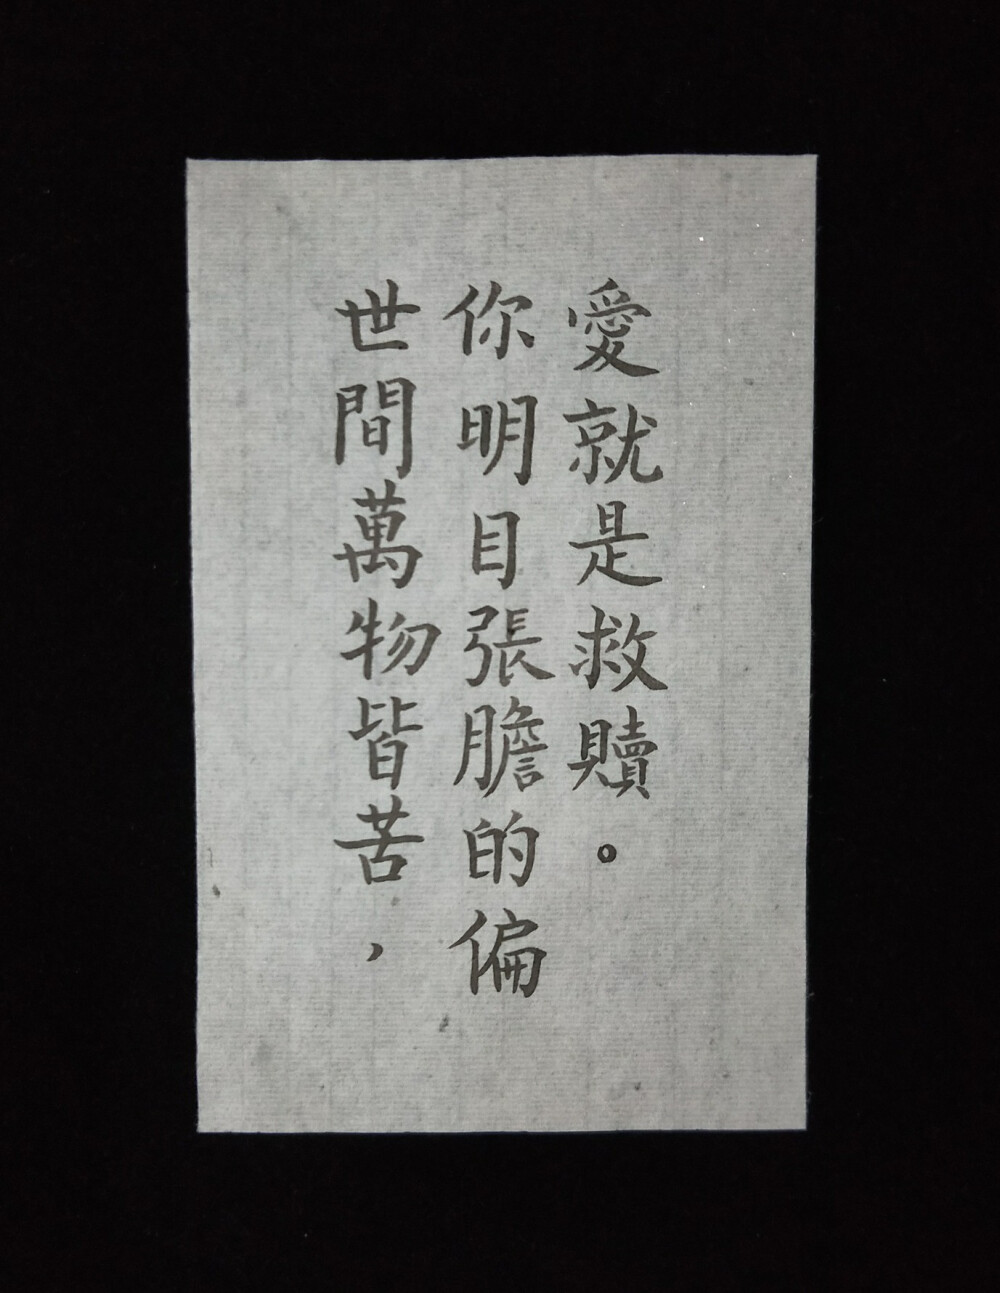 世間萬物皆苦，
你明目張膽的偏
愛就是救贖。